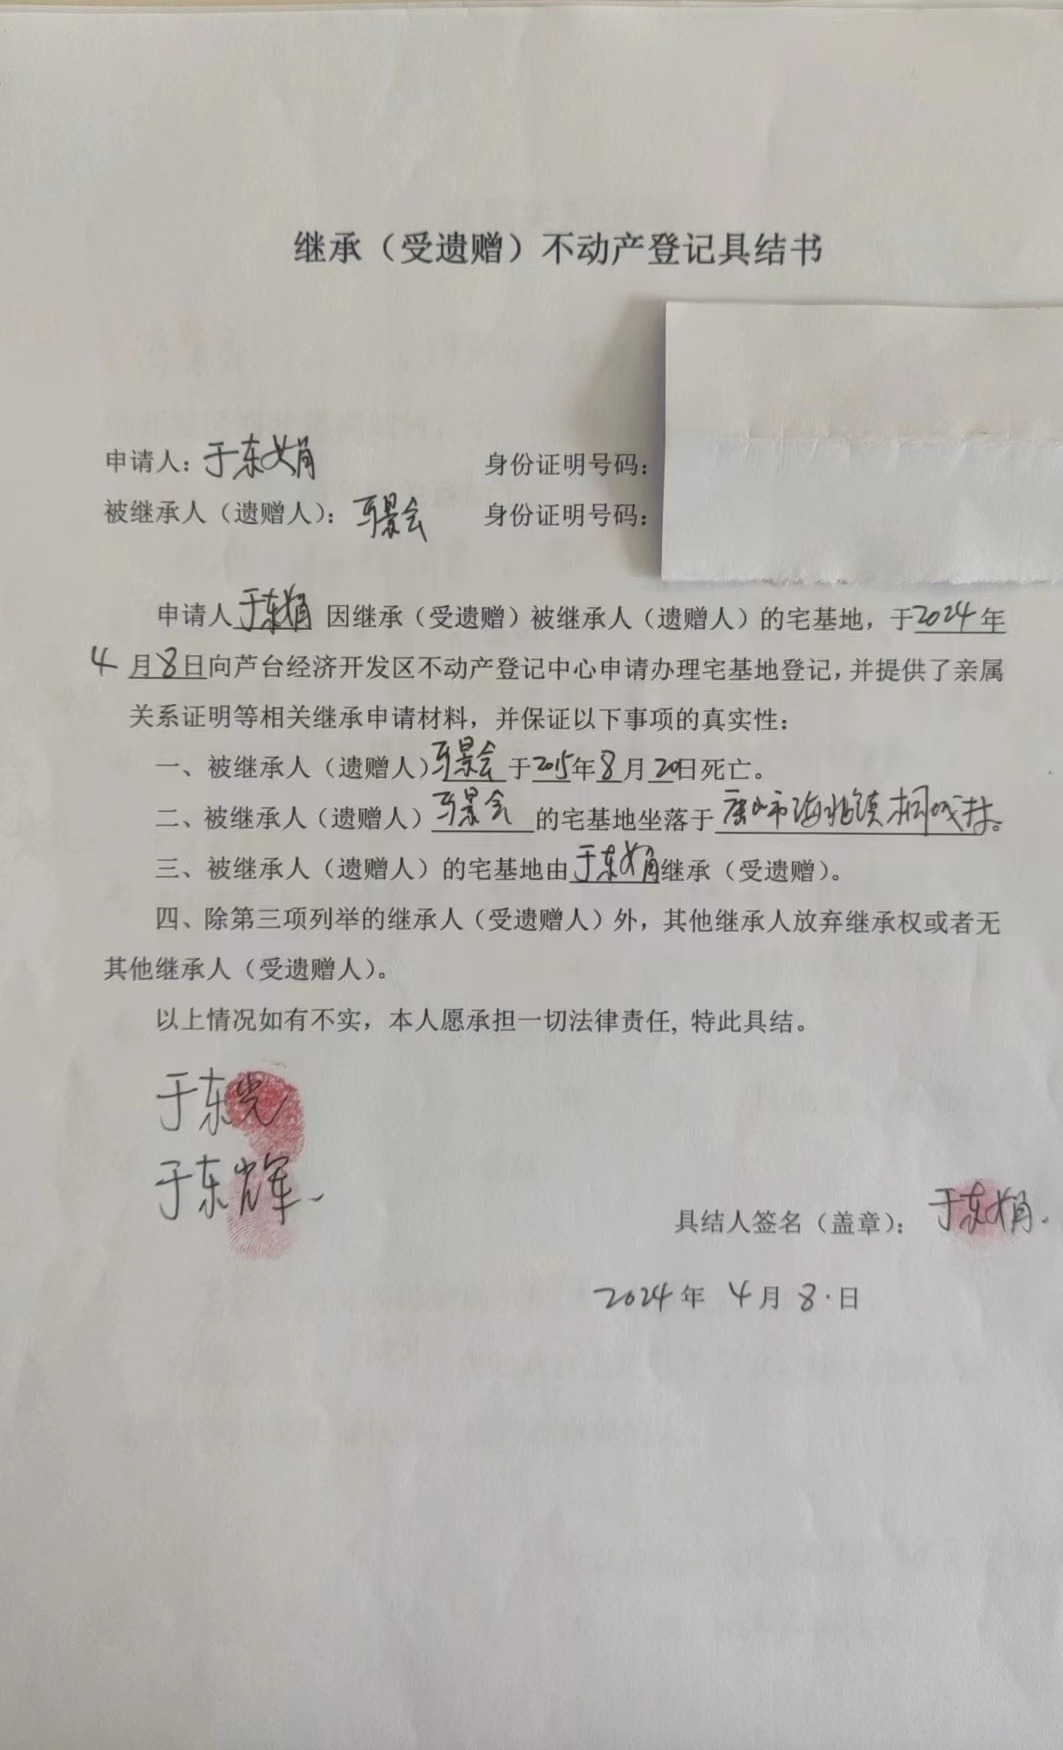 继承（受遗赠）不动产登记具结书
申请人：于东娟 身份证明号码：
被继承人（遗赠人）： 景会 身份证明号码：
申请人于东娟因继承（受遗赠）被继承人（遗赠人）的宅基地，于2024年
4月8日向芦台经济开发区不动产登记中心申请办理宅基地登记，并提供了亲属
关系证明等相关继承申请材料，并保证以下事项的真实性：
一、被继承人（遗赠人）景会于2015年8月20日死亡。
二、被继承人（遗赠人）景会的宅基地坐落于唐山市海北镇村。
三、被继承人（遗赠人）的宅基地由于东娟继承（受遗赠）。
四、除第三项列举的继承人（受遗赠人）外，其他继承人放弃继承权或者无
其他继承人（受遗赠人）。
以上情况如有不实，本人愿承担一切法律责任, 特此具结。
于东光
于东辉
具结人签名（盖章）：于东娟
2024年 4月 8日